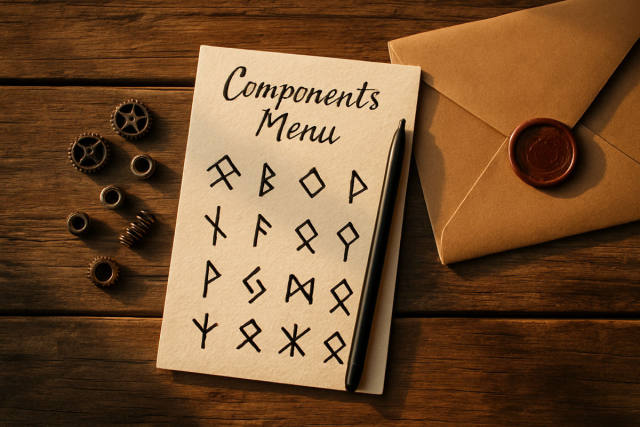 Components
Menu
ᛒ ᛜ ᚹ
ᚾ ᚨ ᛟ
ᚹ ᛞ ᛟ
ᛉ ᛟ ᚼ ᛟ